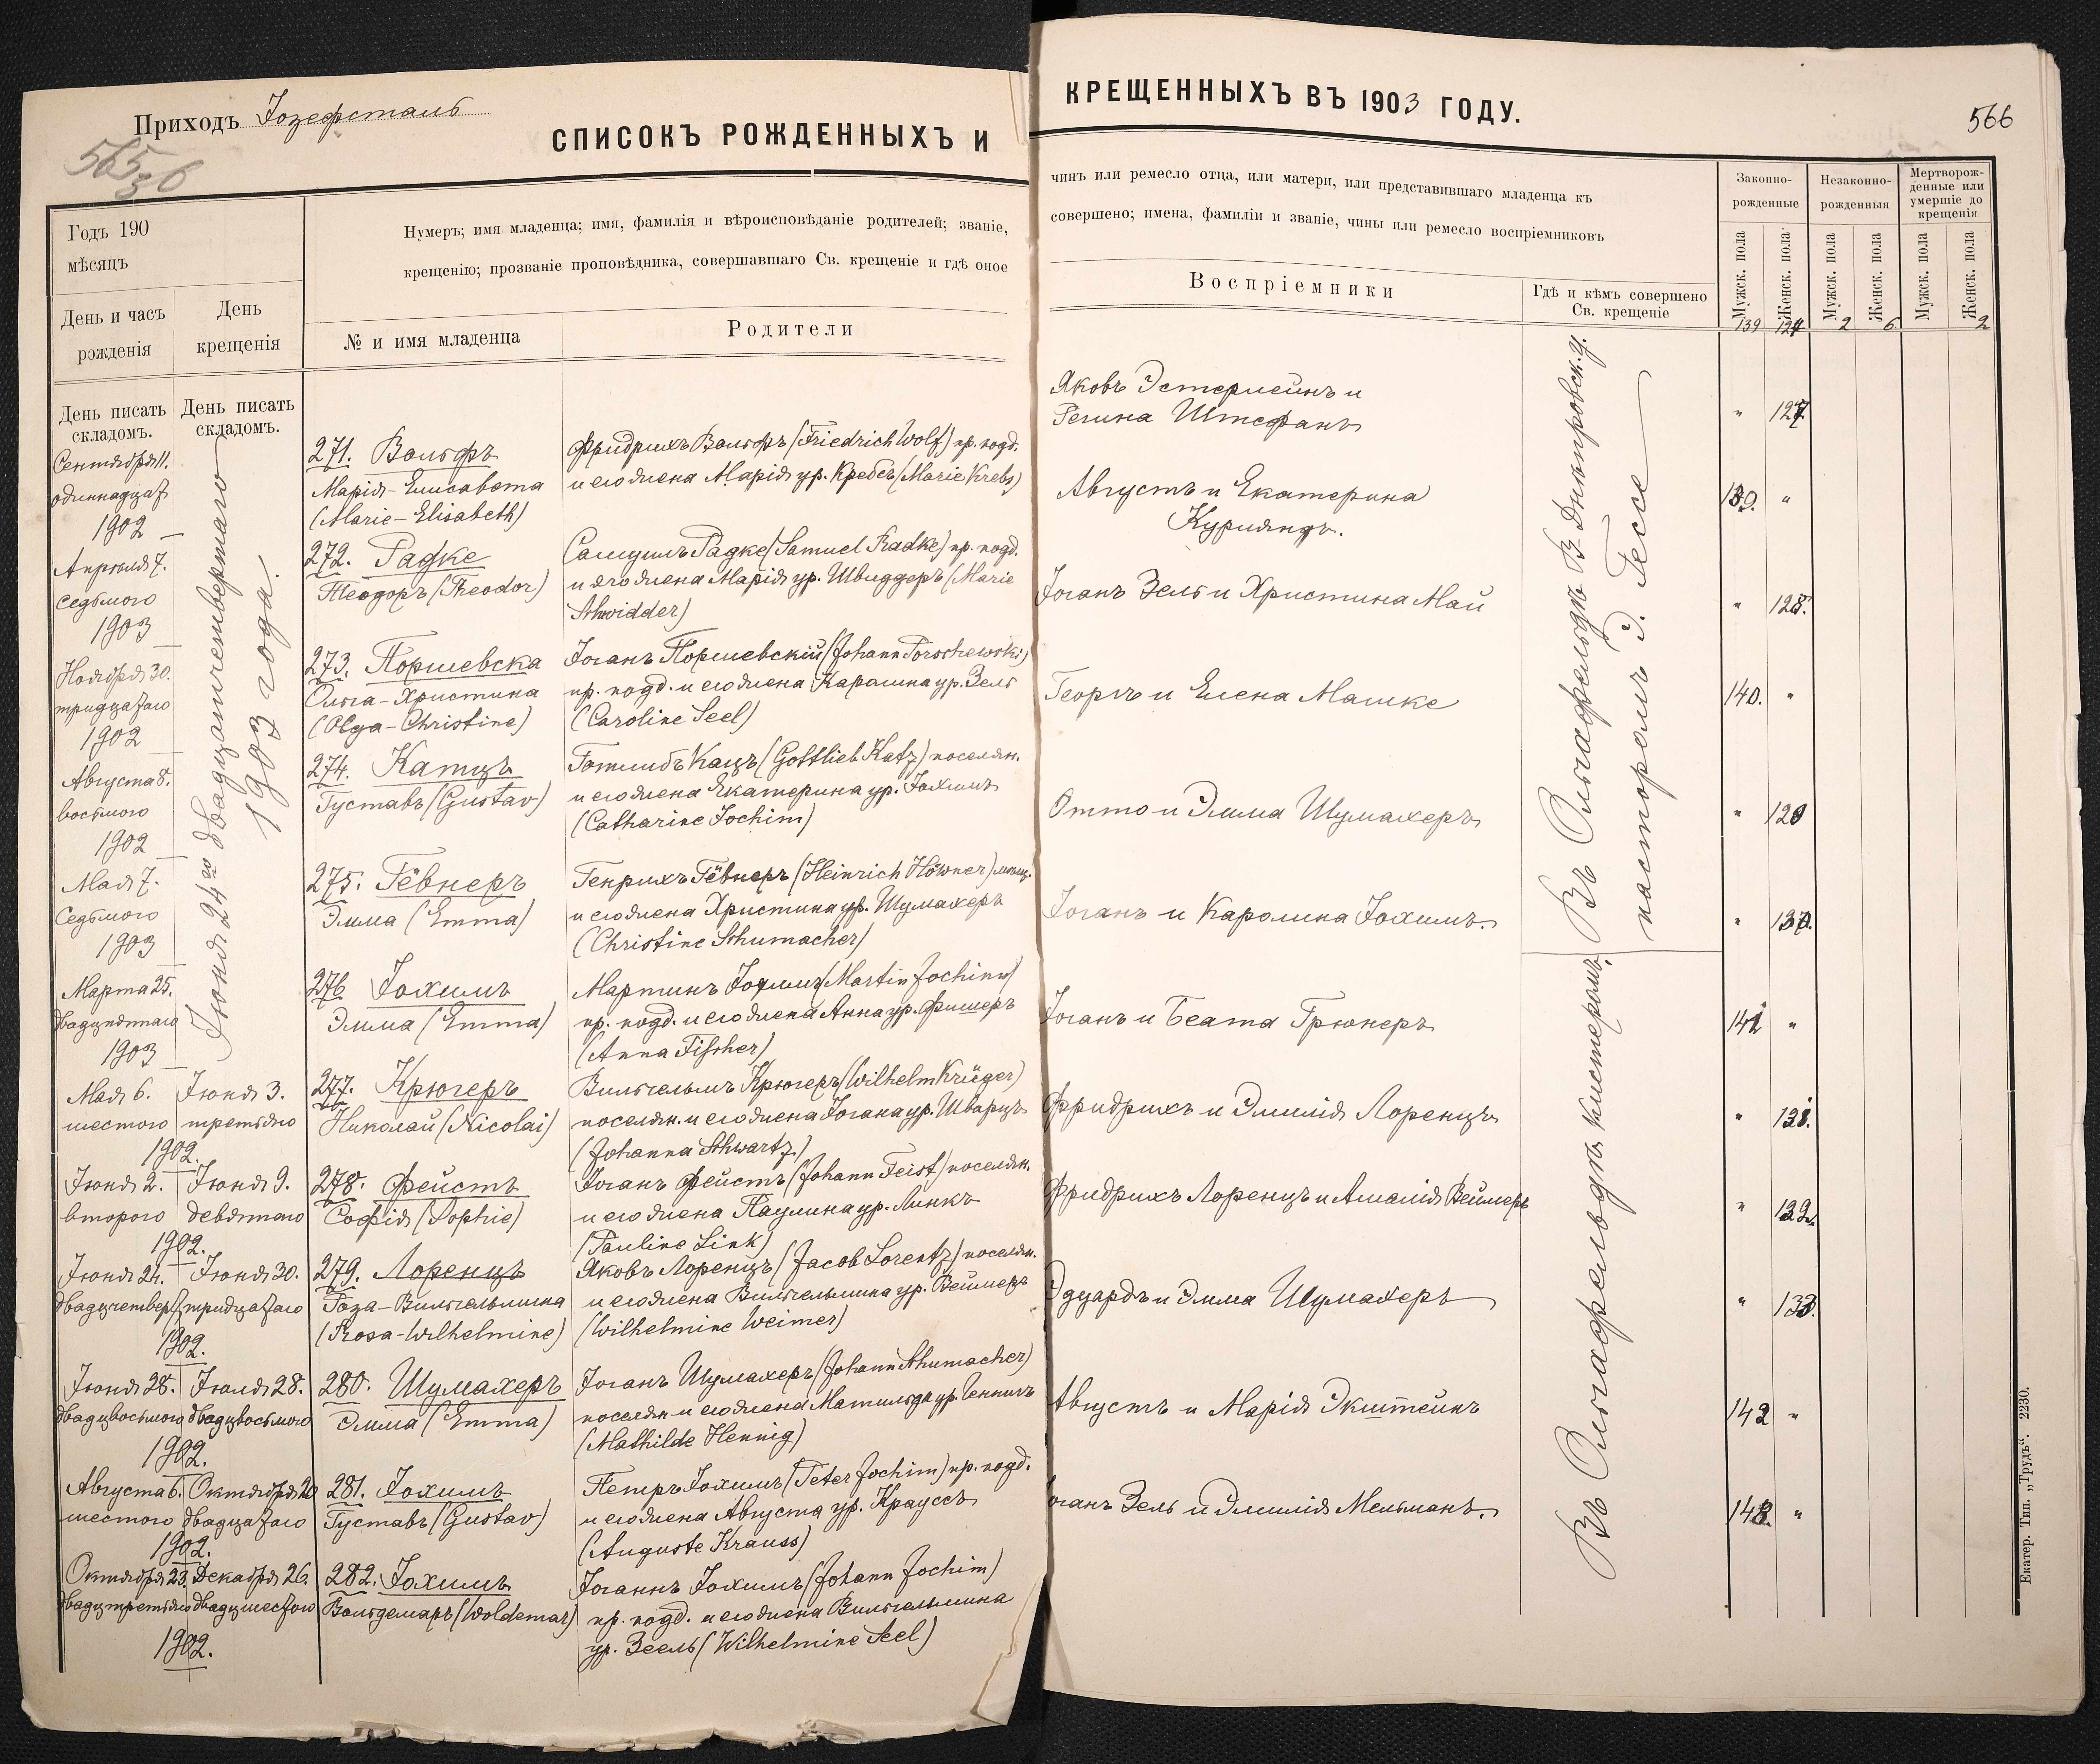 Приходъ Іозефсталь
565
36
СПИСОКЪ РОЖДЕННЫХЪ И
Годъ 190
мѣсяцъ
День и часъ
рожденія
День
крещенія
Нумеръ; имя младенца; имя, фамилія и вѣроисповѣданіе родителей; званіе,
крещенію; прозваніе проповѣдника, совершавшаго Св. крещеніе и гдѣ оное
№ и имя младенца
Родители
День писать
складомъ.
День писать
складомъ.
Іюня 24го двадцатичетвертаго
1903 года.
Сентября 11.
одиннадцат
1902
271. Вольфъ
Марія-Елисавета
(Marie-Elisabeth)
Фридрихъ Вольфъ (Friedrich Wolf) пр. подд.
и его жена Марія ур. Кребсъ (Marie Krebs)
Апрѣля 7.
седьмого
1903
272. Радке
Теодоръ (Theodor)
Самуилъ Радке (Samuel Radke) пр. подд.
и его жена Марія ур. Швиддеръ (Marie
Schwidder)
Ноября 30.
тридцатаго
1902
273. Поршевска
Ольга-Христина
(Olga-Christine)
Іоганъ Поршевскій (Johann Poroschewski)
пр. подд. и его жена Каролина ур. Зель
(Caroline Seel)
Августа 8.
восьмого
1902
274. Катцъ
Густавъ (Gustav)
Готлибъ Кацъ (Gottlieb Katz) поселян.
и его жена Екатерина ур. Іохимъ
(Catharine Jochim)
Мая 7.
Седьмого
1903
275. Гёвнеръ
Эмма (Emma)
Генрихъ Гёвнеръ (Heinrich Höwner) мѣщ.
и его жена Христина ур. Шумахеръ
(Christine Schumacher)
Марта 25.
двадцпятаго
1903
276 Іохимъ
Эмма (Emma)
Мартинъ Іохимъ (Martin Jochim)
пр. подд. и его жена Анна ур. Фишеръ
(Anna Fischer)
Мая 6. Іюня 3.
шестого третьяго
1902.
277. Крюгеръ
Николай (Nicolai)
Вильгельмъ Крюгеръ (Wilhelm Krüger)
поселян. и его жена Іогана ур. Шварцъ
(Johanna Schwartz)
Іюня 2. Іюня 9.
второго девятаго
1902.
278. Фейстъ
Софія (Sophie)
Іоганъ Фейстъ (Johann Feist) поселян.
и его жена Паулина ур. Линкъ
(Pauline Link)
Іюня 24. Іюня 30.
двадцчетверт тридцатаго
1902.
279. Лоренцъ
Роза-Вильгельмина
(Rosa-Wilhelmine)
Яковъ Лоренцъ (Jacob Lorentz) поселян.
и его жена Вильгельмина ур. Веймеръ
(Wilhelmine Weimer)
Іюня 28. Іюля 28.
двадцвосьмого двадцвосьмого
1902.
280. Шумахеръ
Эмма (Emma)
Іоганъ Шумахеръ (Johann Schumacher)
поселян. и его жена Матильда ур. Геннигъ
(Mathilde Hennig)
Августа 6. Октября 20
шестого двадцатаго
1902.
281. Іохимъ
Густавъ (Gustav)
Петръ Іохимъ (Peter Jochim) пр. подд.
и его жена Августа ур. Крауссъ
(Auguste Krauss)
Октября 23. Декабря 26.
двадцтретьяго двадцшестого
1902.
282. Іохимъ
Вольдемаръ (Woldemar)
Іоганнъ Іохимъ (Johann Jochim)
пр. подд. и его жена Вильгельмина
ур. Зеель (Wilhelmine Seel)
КРЕЩЕННЫХЪ ВЪ 1903 ГОДУ.
566
чинъ или ремесло отца, или матери, или представившаго младенца къ
совершено; имена, фамиліи и званіе, чины или ремесло воспріемниковъ
Воспріемники
Гдѣ и кѣмъ совершено
Св. крещеніе
Законно-
рожденные
Незаконно-
рожденныя
Мертворож-
денные или
умершіе до
крещенія
Мужск. пола
Женск. пола
Мужск. пола
Женск. пола
Мужск. пола
Женск. пола
139 2 6 2
Яковъ Эстерлейнъ и
Регина Штефанъ
" 127
Августъ и Екатерина
Курляндъ.
139. "
Іоганъ Зель и Христина Май
" 128.
Георгъ и Елена Машке
140. "
Отто и Эмма Шумахеръ
"
Іоганъ и Каролина Іохимъ.
" 130.
Іоганъ и Беата Грюнеръ
141 "
Фридрихъ и Эмилія Лоренцъ
" 131.
Фридрихъ Лоренцъ и Амалія Веймеръ
" 132.
Эдуардъ и Эмма Шумахеръ
" 133.
Августъ и Марія Экштейнъ
142 "
Іоганъ Зель и Эмилія Мельманъ.
143. "
Въ Ольгафельдѣ В. Днѣпровск. у.
пасторомъ Э. Гессе
Въ Ольгафельдѣ, кистеромъ.
Екатер. Тип. „Трудъ“. 2230.